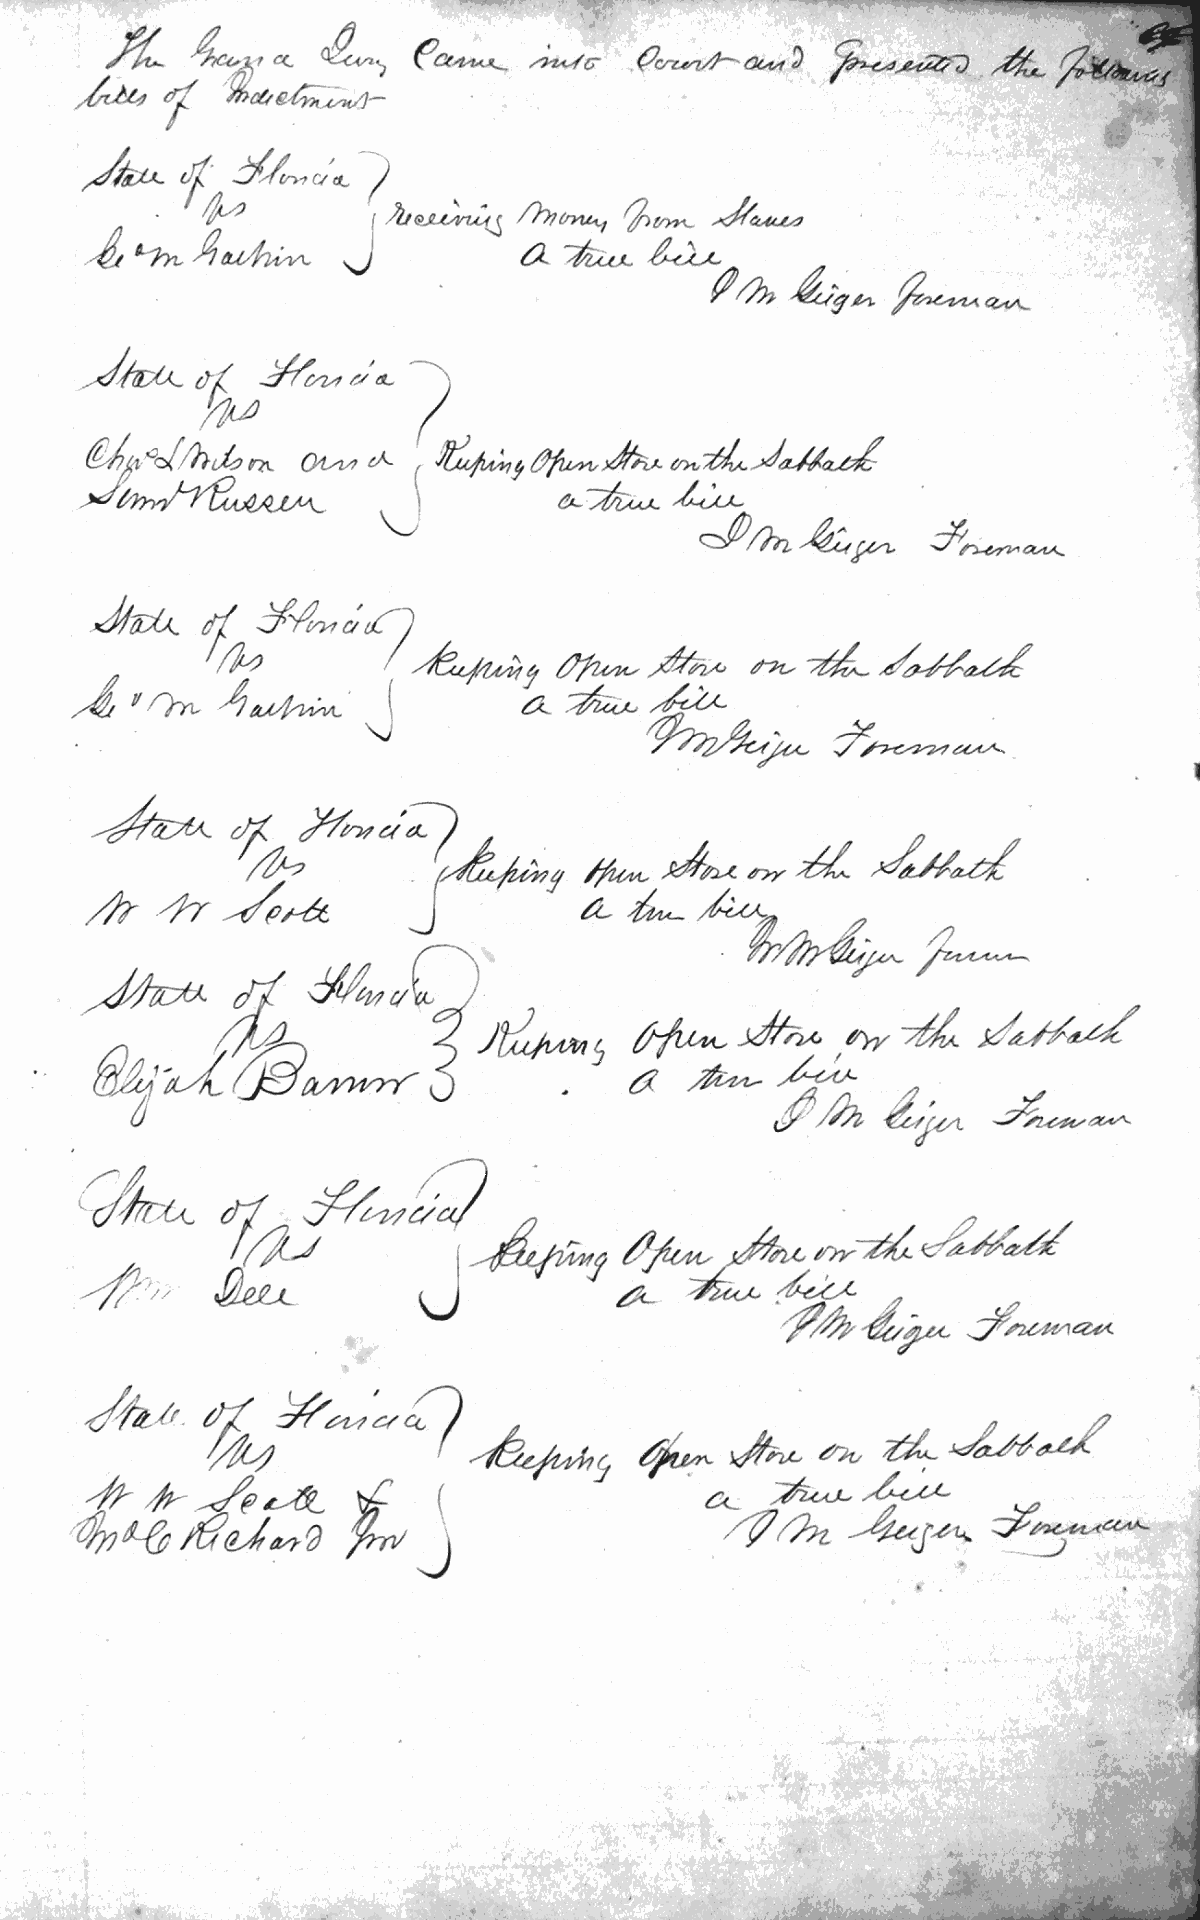 The Grand Jury Came into Court and presented the following
bills of Indictment
State of Florida
vs
receiving money from Slaves
Geo M Gaskin
a true bill
I M Geiger foreman
State of Florida
vs
Chas L Wilson and
Keeping Open Store on the Sabbath
Saml Russell
a true bill
I M Geiger Foreman
State of Florida
vs
Keeping Open Store on the Sabbath
Geo M Gaskin
a true bill
I M Geiger Foreman
State of Florida
vs
Keeping open Store on the Sabbath
W W Scott
a true bill
M Geiger foreman
State of Florida
vs
Keeping Open Store on the Sabbath
Elijah Barrow
a true bill
I M Geiger Foreman
State of Florida
vs
Keeping Open Store on the Sabbath
Wm Dell
a true bill
I M Geiger Foreman
State of Florida
vs
Keeping Open Store on the Sabbath
W W Scott &
a true bill
C Richard
I M Geiger Foreman